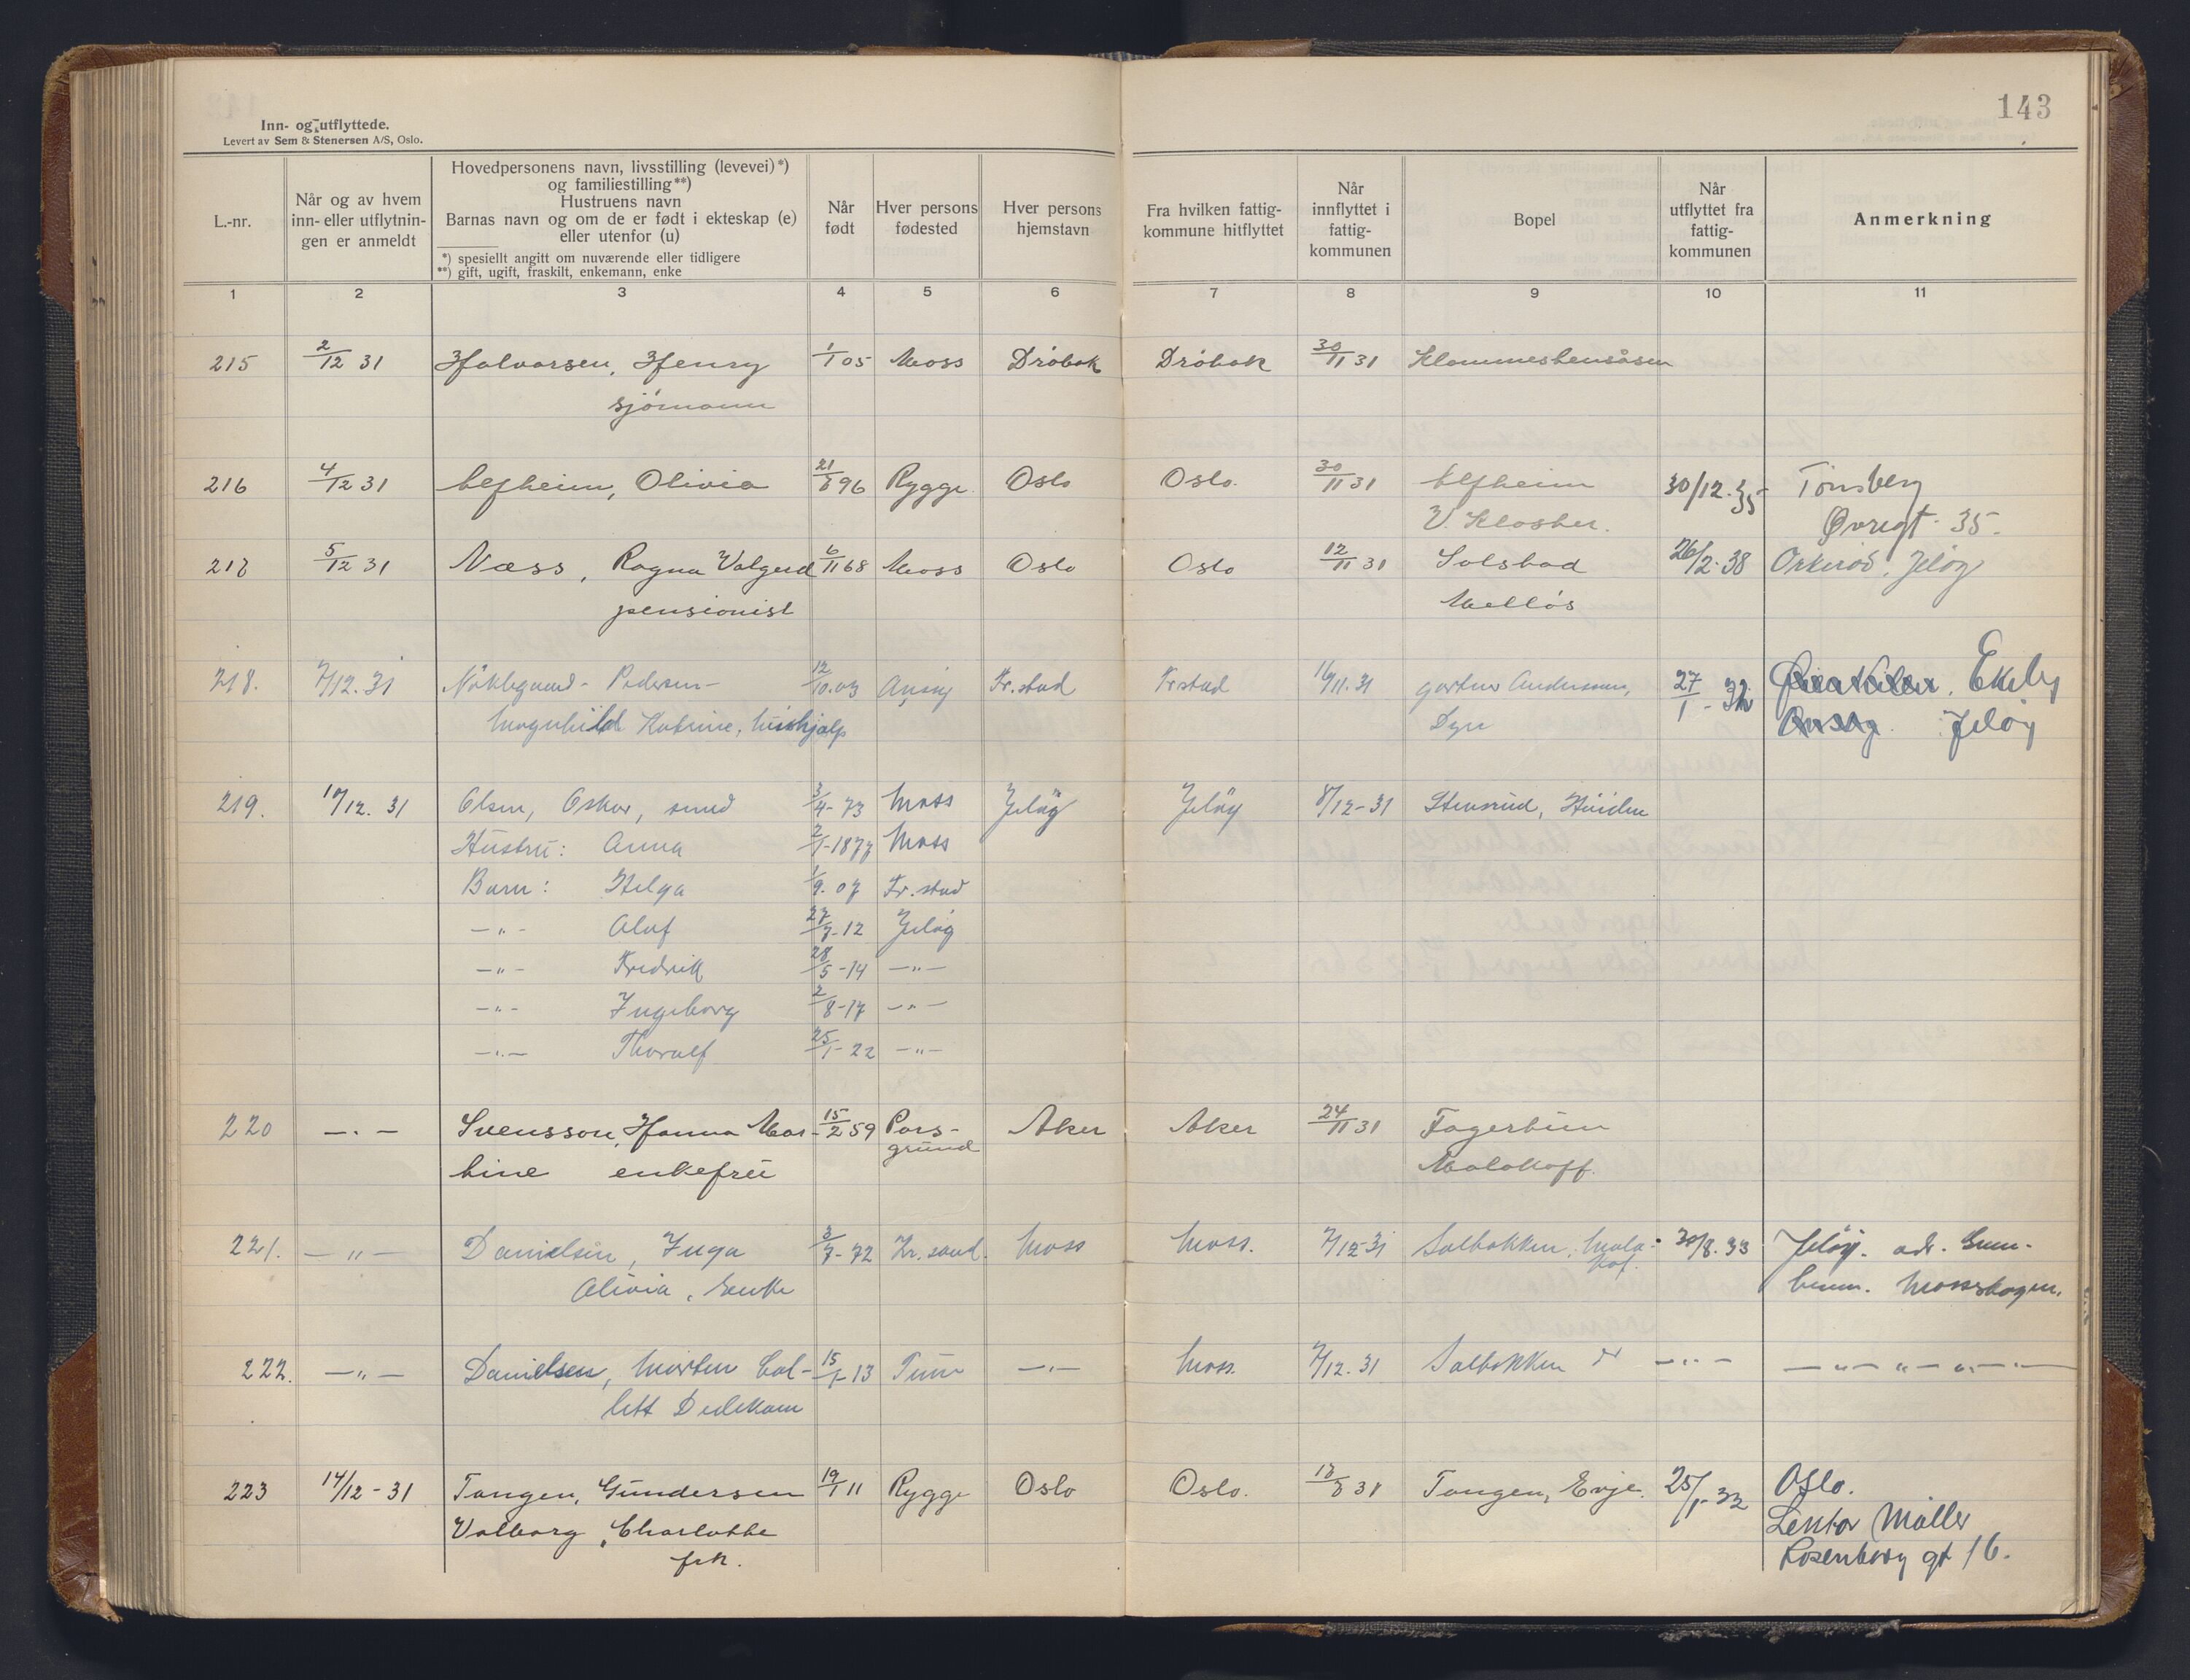 143
Inn- og utflyttede.
Levert av Sem & Stenersen A/S, Oslo.
L.-nr.
Når og av hvem
inn- eller utflytnin-
gen er anmeldt
Hovedpersonens navn, livsstilling (levevei)*)
og familiestilling**)
Hustruens navn
Barnas navn og om de er født i ekteskap (e)
eller utenfor (u)
*) spesiellt angitt om nuværende eller tidligere
**) gift, ugift, fraskilt, enkemann, enke
Når
født
Hver persons
fødested
Hver persons
hjemstavn
Fra hvilken fattig-
kommune hitflyttet
Når
innflyttet i
fattig-
kommunen
Bopel
Når
utflyttet fra
fattig-
kommunen
Anmerkning
1 2 3 4 5 6 7 8 9 10 11
215 2/12 31 Halvorsen, Henry 1/1 05 Moss Drøbak Drøbak 30/11 31
sjømann
216 4/12 31 Olivia 96 Rygge Oslo Oslo. 30/11 31 30/12. 35 Tønsberg
V. Kloster. Øvregt. 35.
217 5/12 31 Næss, Ragna Valgerd 6/11 68 Moss Oslo Oslo 12/11 31 Solstad 26/2-38 Orkerød, Jeløy
pensionist Melløs
218. 7/12. 31 Pedersen 12/10.03 Fr.stad Frstad 16/11.31 gartner Andersen, 27/1-32 Ekeby
Magnhild Katrine, hushjælp Dyre Jeløy
219. 10/12. 31 Olsen, Oskar, smed 3/4-73 Moss Jeløy Jeløy 8/12-31 Stensrud, Høiden
Hustru: Anna 2/1-1877 Moss
Barn: Helga 1/9. 07 Fr.stad
-"- Olaf 27/7-12 Jeløy
-"- Fredrik 28/5-14 -"-
-"- Ingeborg 2/8-17 -"-
-"- Thoralf 25/1-22 -"-
220 -"- Svensson, Hanna Mar- 15/2 59 Pors- Aker Aker 24/11 31 Fagertun
grund
tine enkefrü Malakoff.
221. -"- Danielsen, Inga 3/7-72 Kr.sand. Moss Moss. 7/12-31 Solbakken, Mala- 30/8.33 Jeløy. adr.
kof.
Olivia, enke Mosseskogen.
222. -"- Danielsen, Morten Col- 15/1-13 Tune -"- Moss. 7/12.31 Solbakken -"- -"-"-"-"-
lett Dedekam
223 14/12-31 Tangen, Gundersen 19/1 11 Rygge Oslo Oslo. 31 Tangen, Evje. 25/1-32 Oslo.
Valborg Charlotte Lektor Møller
frk. Rosenborg gt 16.